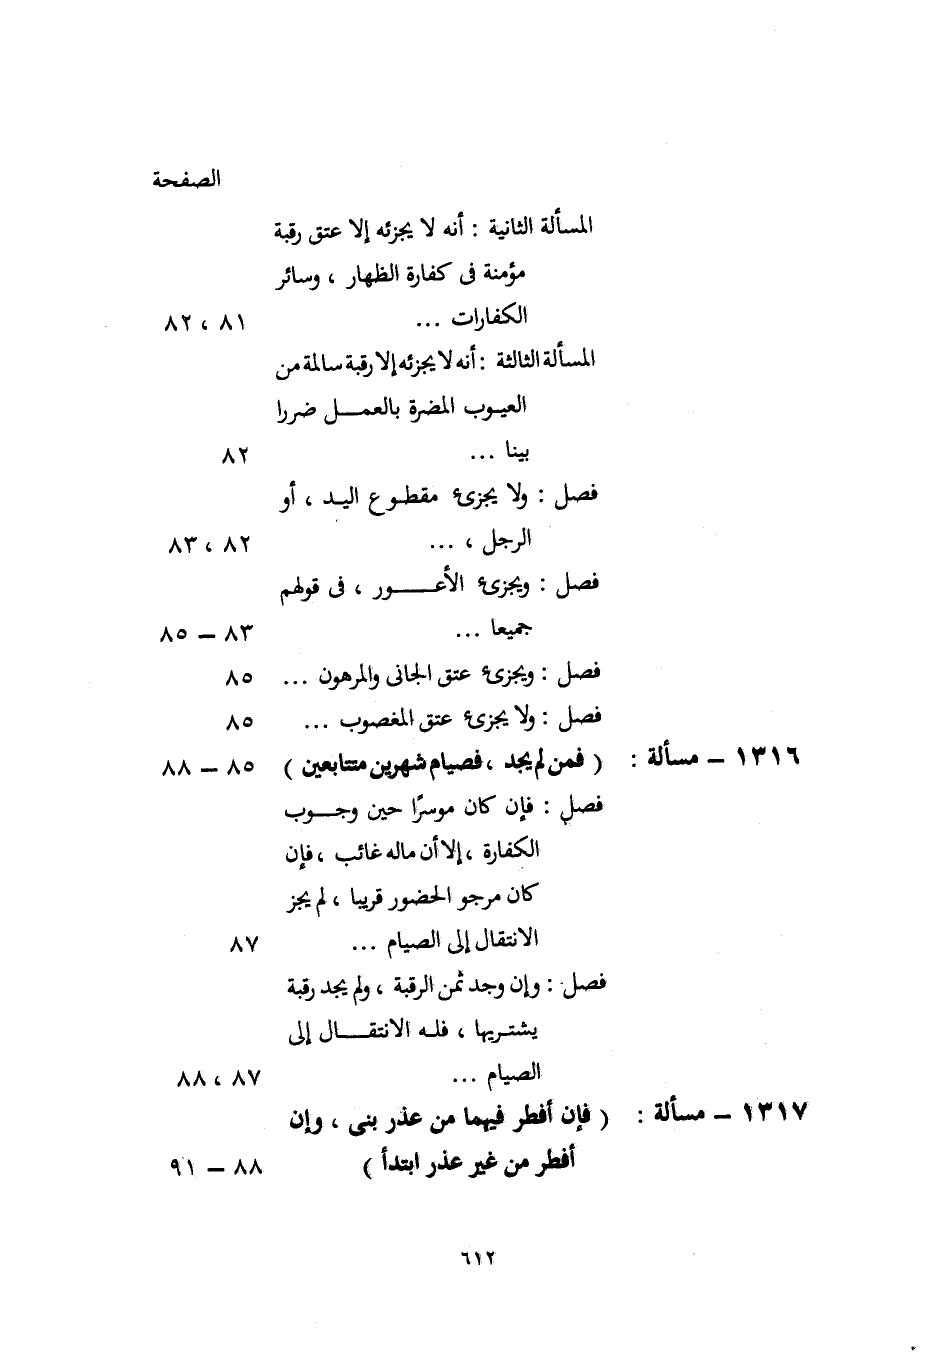 الصفحة
المسألة الثانية : أنه لا يجزئه إلا عتق رقبة
مؤمنة فى كفارة الظهار ، وسائر
الكفارات ... ٨١ ، ٨٢
المسألة الثالثة : أنه لا يجزئه إلا رقبة سالمة من
العيوب المضرة بالعمل ضررا
بينا ... ٨٢
فصل : ولا يجزئ مقطوع اليد ، أو
الرجل ، ... ٨٢ ، ٨٣
فصل : ويجزئ الأعور ، فى قولهم
جميعا ... ٨٣ – ٨٥
فصل : ويجزئ عتق الجانى والمرهون ... ٨٥
فصل : ولا يجزئ عتق المغصوب ... ٨٥
١٣١٦ – مسألة : ( فمن لم يجد ، فصيام شهرين متتابعين ) ٨٥ – ٨٨
فصل : فإن كان موسرًا حين وجوب
الكفارة ، إلا أن ماله غائب ، فإن
كان مرجو الحضور قريبا ، لم يجز
الانتقال إلى الصيام ... ٨٧
فصل : وإن وجد ثمن الرقبة ، ولم يجد رقبة
يشتريها ، فله الانتقال إلى
الصيام ... ٨٧ ، ٨٨
١٣١٧ – مسألة : ( فإن أفطر فيهما من عذر بنى ، وإن
أفطر من غير عذر ابتدأ ) ٨٨ – ٩١
٦١٢